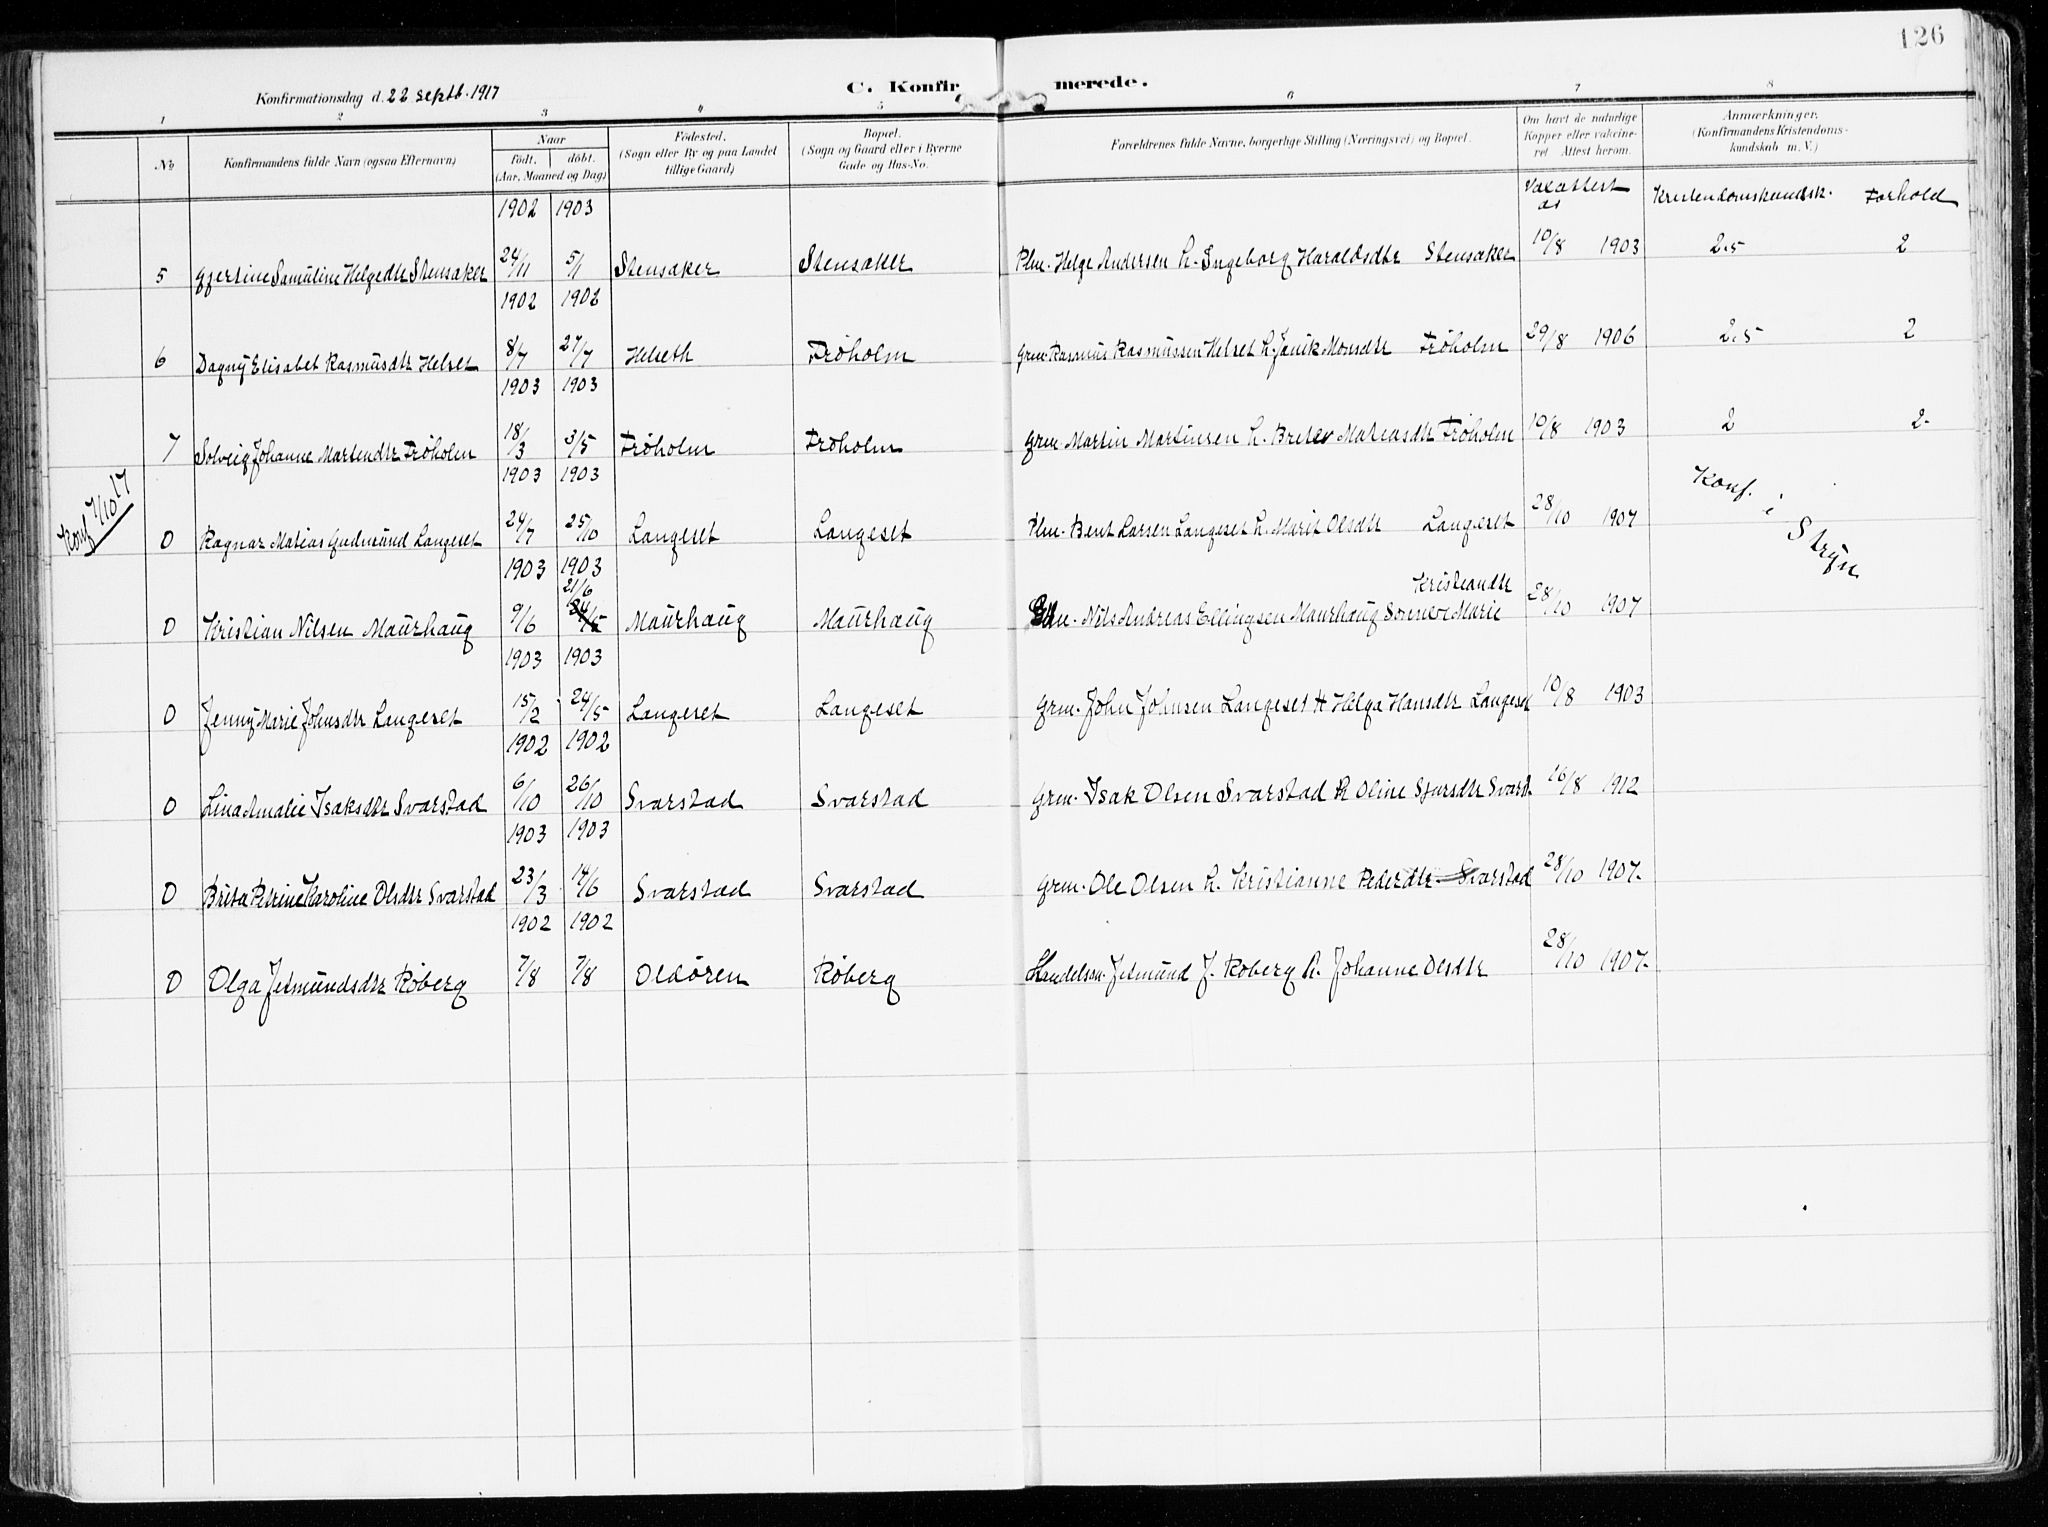 126
Konfirmationsdag d. 22 septb. 1917
C. Konfirmerede.
1 2 3 4 5 6 7 8
No
Konfirmandens fulde Navn (ogsaa Efternavn)
Naar
födt. döbt.
(Aar, Maaned og Dag)
Födested.
(Sogn eller By og paa Landet
tillige Gaard)
Bopæl.
(Sogn og Gaard eller i Byerne
Gade og Hus-No.
Forældrenes fulde Navne, borgerlige Stilling (Næringsvei) og Bopæl.
Om havt de naturlige
Kopper eller vakcine-
ret Attest herom.
Anmærkninger.
(Konfirmandens Kristendoms-
kundskab m. V.)
Vaxattest
af
Kristendomskundsk. Forhold
1902 1903
5 Gjertine Samuline Helgedtr Stensaker 24/11 5/1 Stensaker Stensaker Plm. Helge Andersen h. Ingeborg Haraldsdtr Stensaker 10/8 1903 2.5 2
1902 1902
6 Dagny Elisabet Rasmusdtr Helset 8/7 27/7 Helseth Fröholm Grm. Rasmus Rasmussen Helset h. Janik Monsdtr Fröholm 29/8 1906 2.5 2
1903 1903
7 Solveig Johanne Martendtr Fröholm 18/3 3/5 Fröholm Fröholm Grm. Martin Martinsen h. Brite Matiasdtr Fröholm 10/8 1903 2 2.
1903 1903
Konf 7/10 17
0 Ragnar Matias Gudmund Langeset 24/7 25/10 Langeset Langeset Plm. Bent Larsen Langeset h. Marit Olsdtr Langeset 28/10 1907 Konf. i Stryn
1903 1903
21/6
0 Kristian Nilsen Maurhaug 9/6 24/5 Maurhaug Maurhaug Nils Andreas Ellingsen Maurhaug Sonnev Marie Kristiandtr 28/10 1907
1903 1903
0 Jenny Marie Johnsdtr Langeset 15/2 24/5 Langeset Langeset Grm. John Johnsen Langeset H Helga Hansdtr Langeset 10/8 1903
1902 1902
0 Lina Amalie Isaksdtr Svarstad 6/10 26/10 Svarstad Svarstad Grm. Isak Olsen Svarstad h Oline Sjursdtr Svarst. 16/8 1912
1903 1903
0 Brita Petrine Karoline Olsdtr Svarstad 23/3 14/6 Svarstad Svarstad Grm. Ole Olsen h. Kristianne Pederdtr Svarstad 28/10 1907.
1902 1902
0 Olga Jetmundsdtr Röberg 7/8 7/8 Oldören Röberg Handelsm. Jetmund J. Röberg h. Johanne Olsdtr 28/10 1907.